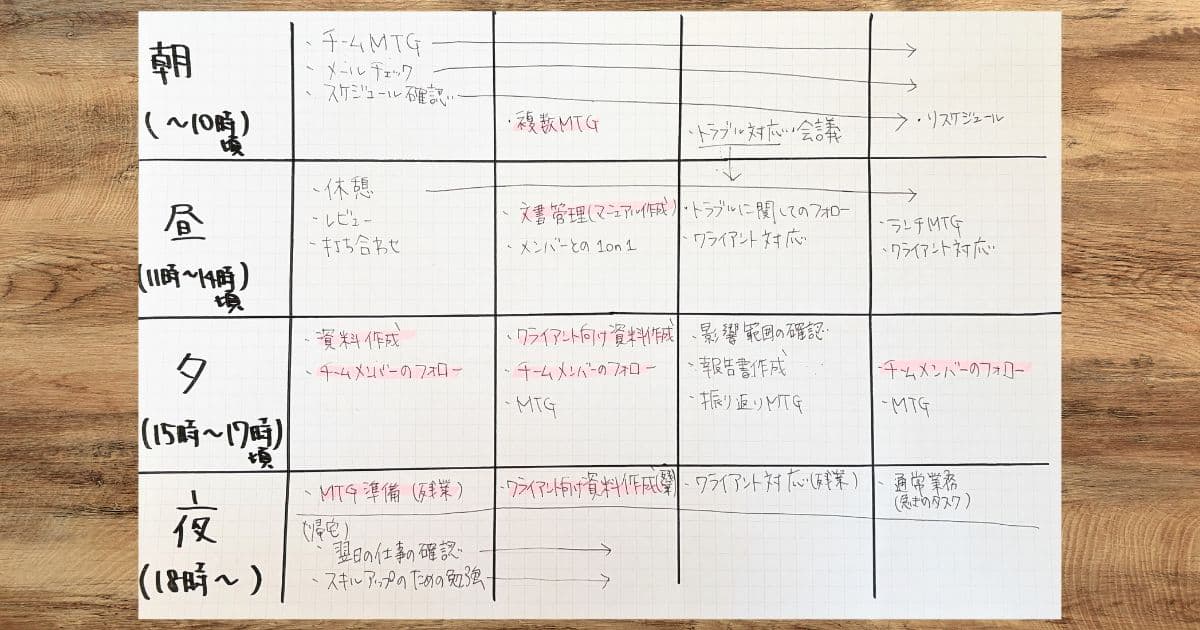 朝
(~10時)
頃
・チームMTG
・メールチェック
・スケジュール確認
・複数MTG
・トラブル対応・会議
・リスケジュール
昼
(11時~14時)
頃
・休憩
・レビュー
・打ち合わせ
・文書管理(マニュアル作成)
・メンバーとの1on1
・トラブルに関してのフォロー
・クライアント対応
・ランチMTG
・クライアント対応
夕
(15時~17時)
頃
・資料作成
・チームメンバーのフォロー
・クライアント向け資料作成
・チームメンバーのフォロー
・MTG
・影響範囲の確認
・報告書作成
・振り返りMTG
・チームメンバーのフォロー
・MTG
夜
(18時~)
・MTG準備(残業)
・クライアント向け資料作成(残業)
・クライアント対応(残業)
・通常業務
(急ぎのタスク)
(帰宅)
・翌日の仕事の確認
・スキルアップのための勉強